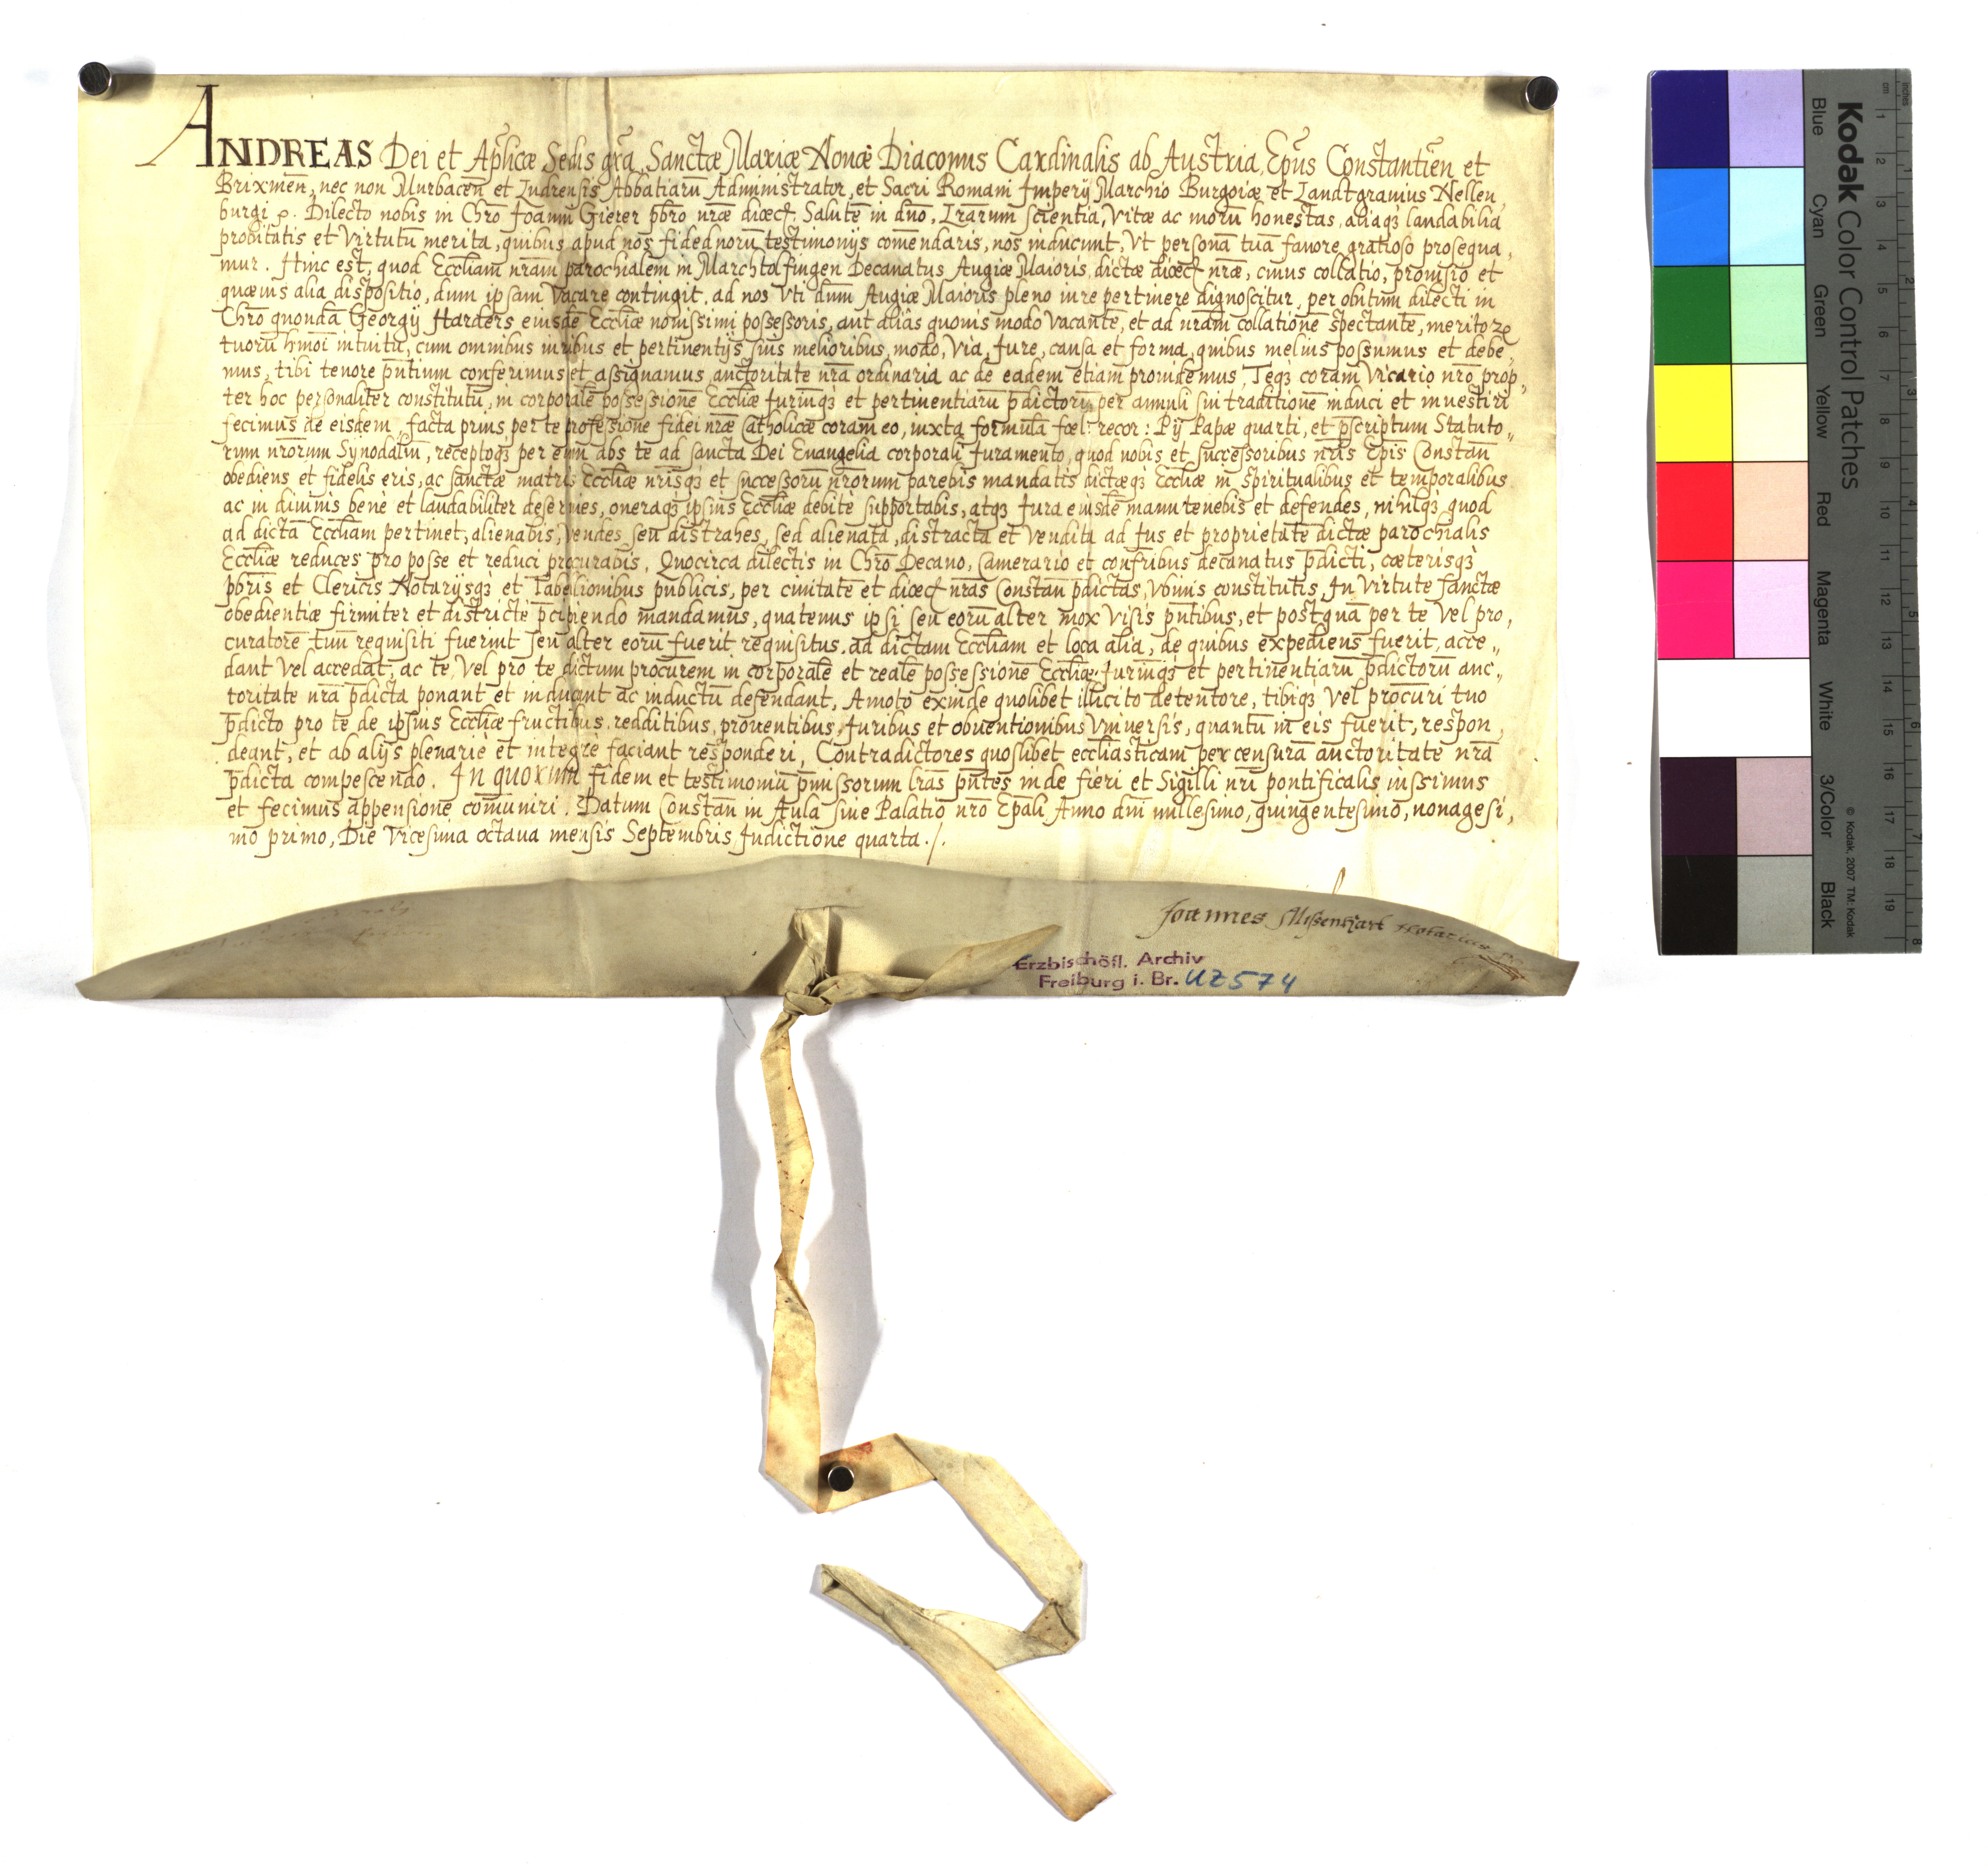 ANDREAS Dei et Ap̃licæ Sedis gr̃a, Sanctæ Mariæ Nouæ Diaconus Cardinalis ab Austria, Ep̃us Constantien̄ et
Brixinen̄, nec non Murbacen̄ et Ludrensis Abbatiarū Administrator, et Sacri Romani Imperij Marchio Burgoiæ et Landtgrauius Nellen,
burgi ꝛc. Dilecto nobis in Chr̄o Joanni Gierer p̄bro nr̄æ diœc̄. Salutē in dn̄o, Lr̄arum scientia, Vitæ ac morū honestas, aliaqꝫ laudabilia
probitatis et Virtutū merita, quibus apud nos fidedignorū testimonijs com̄endaris, nos inducunt, Vt personā tuā fauore gratioso prosequa,
mur. Hinc est, quod Eccl̄iam nr̄am parochialem in Marchtolfingen Decanatus Augiæ Maioris, dictæ diœc̄ nr̄æ, cuius collatio, prouisio et
quæuis alia dispositio, dum ipsam Vacare contingit, ad nos Vti dn̄m Augiæ Maioris pleno iure pertinere dignoscitur, per obitum dilecti in
Chr̄o quondā Georgij Harders eiusdē Eccl̄iæ nouissimi possessoris, aut aliâs quouis modo Vacantē, et ad nr̄am collationē spectantē, meritoꝝ
tuorū hm̄oi intuitu, cum omnibus iuribus et pertinentijs suis melioribus, modo, Via, Jure, causa et forma, quibus melius possumus et debe,
mus, tibi tenore pn̄tium conferimus et assignamus auctoritate nr̄a ordinaria ac de eadem etiam prouidemus, Teqꝫ coram Vicario nr̄o prop,
ter hoc personaliter constitutū, in corporalē possessionē Eccl̄iæ Juriumqꝫ et pertinentiarū p̄dictorū per annuli sui traditionē induci et inuestiri
fecimus de eisdem, facta prius per te professione fidei nr̄æ Catholicæ coram eo, iuxta formulā fœl: recor: Pij Papæ quarti, et p̄scriptum Statuto,,
rum nr̄orum Synodaliū, receptoqꝫ per eūm abs te ad sancta Dei Euangelia corporali Juramento, quod nobis et successoribus nr̄is Ep̄is Constan̄
obediens et fidelis eris, ac sanctæ matris Eccl̄iæ nr̄isqꝫ et successorū nr̄orum parebis mandatis dictæqꝫ Eccl̄iæ in spiritualibus et temporalibus
ac in diuinis benè et laudabiliter deseruies, oneraqꝫ ipsius Eccl̄iæ debitè supportabis, atqꝫ Jura eiusdē manutenebis et defendes, nihilqꝫ quod
ad dictā Eccl̄iam pertinet, alienabis, Vendes seu distrahes, sed alienata, distracta et Vendita ad Jus et proprietatē dictæ parochialis
Eccl̄iæ reduces pro posse et reduci procurabis. Quocirca dilectis in Chr̄o Decano, Camerario et confr̄ibus decanatus p̄dicti, cæterisqꝫ
p̄bris et Clericis Notarijsqꝫ et Tabellionibus publicis, per ciuitatē et diœc̄ nr̄as Constan̄ p̄dictas, Vbiuis constitutis, In Virtute sanctæ
obedientiæ firmiter et districtè p̄cipiendo mandamus, quatenus ipsi seu eorū alter mox Visis pn̄tibus, et postquā per te Vel pro,
curatorē tuū requisiti fuerint seu alter eorū fuerit requisitus, ad dictam Eccl̄iam et loca alia, de quibus expediens fuerit, acce,,
dant Vel accedat, ac te, Vel pro te dictum procur̄em in corporalē et realē possessionē Eccl̄iæ, Juriumqꝫ et pertinentiarū p̄dictorū auc,,
toritate nr̄a p̄dicta ponant et inducant ac inductū defendant, Amoto exinde quolibet illicito detentore, tibiqꝫ Vel procur̄i tuo
p̄dicto pro te de ipsius Eccl̄iæ fructibus, redditibus, prouentibus, Juribus et obuentionibus Vniuersis, quantū in eis fuerit, respon,
deant, et ab alijs plenariè et integrè faciant responderi, Contradictores quoslibet eccl̄iasticam per censurā auctoritate nr̄a
p̄dicta compescendo. In quorum fidem et testimoniū p̄missorum lr̄as pn̄tes inde fieri et Sigilli nr̄i pontificalis iussimus
et fecimus appensionē com̄uniri. Datum Constan̄ in Aula siue Palatio nr̄o Ep̄ali Anno dn̄i millesimo, quingentesimo, nonagesi,
mo primo, Die Vicesima octaua mensis Septembris Indictione quarta./.
Joannes Missenhart Notarius
Erzbischöfl. Archiv
Freiburg i. Br. UZ574
Kodak Color Control Patches
Blue Cyan Green Yellow Red Magenta White 3/Color Black
© Kodak, 2007 TM: Kodak
cm 1 2 3 4 5 6 7 8 9 10 11 12 13 14 15 16 17 18 19
inches 1 2 3 4 5 6 7 8